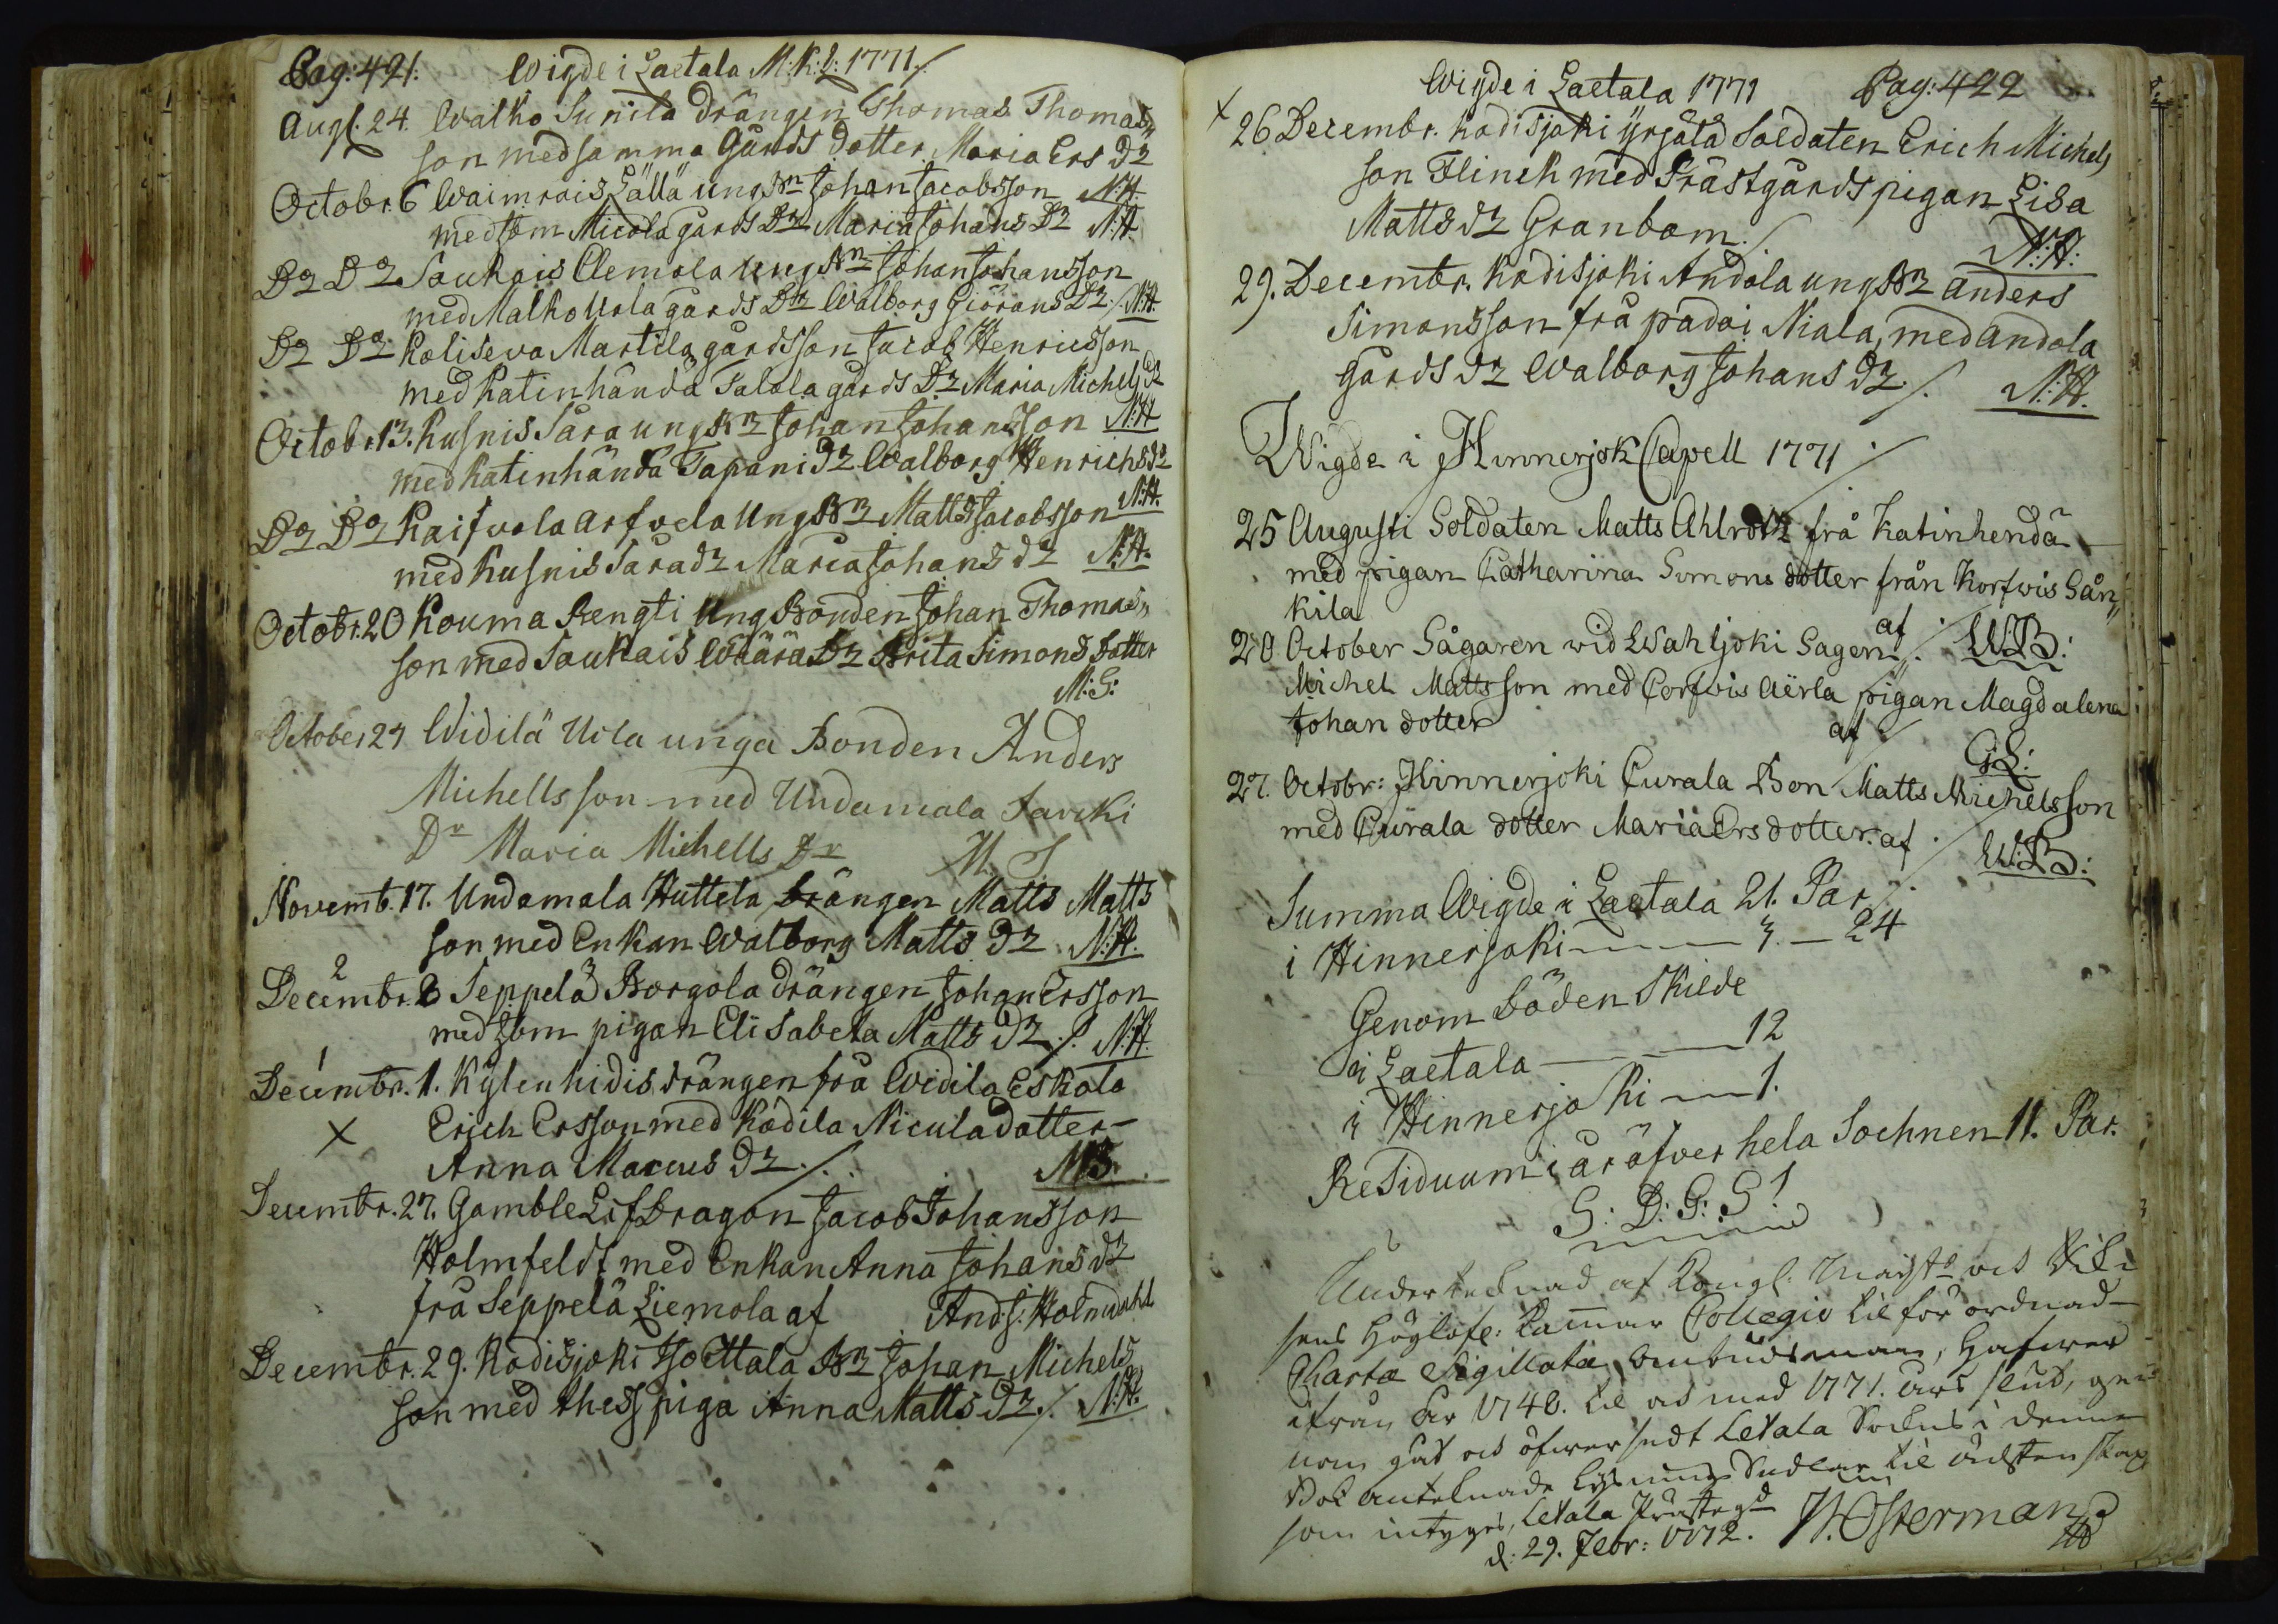 Pag: 421. Wigde i Laetala M:K:l: 1771./.
Augs. 24. Walko Sunila drängen Thomas Thomas„
son med samma Gårds dotter Maria Ers dr
Octobr. 6 Waimrais Lällä ung Bn Johan Jacobsson N:H.
med som Micola gårds Dr Maria Johans Dr N:H.
Do Do Saukois Clemola ung Bn Johan Johansson
med Malko Uola gårds Dr Walborg Giörans Dr./. N:H.
Do Do Koliseva Martila gårdsson Jacob Henricsson
med Katinhändä Talola gårds Dr Maria Michels Dr
Octobr. 13. Kusnis Sara ung Bn Johan Johansson N:H
med Katinhändä Tapani dr Walborg Henrichs dr
Do Do Kaifvola Arfvela Ung Bn Matts Jacobsson N:H.
med Kusnis Sara dr Maria Johans dr N:H.
Octobr. 20 Kouma Bengti Ung Bonden Johan Thomas„
son med Saukais Wäärä Dr Brita Simons Dotter
M:S:
October 27 Widilä Uola unga Bonden Anders
Michells son med Undamala Jaicki
Dr Maria Michells Dr M. S
Novemb. 17. Undamala Huttela drängen Matts Matts
son med Enkan Walborg Matts Dr N:H.
2
Decembr. 8 Seppelä Borgola drängen Johan Ersson
med som pigan Elisabeta Matts Dr./. N:H.
1
Decembr. 1. Kylenhidis drängen frå Widila Eskola
x Erich Ersson med Kodila Nicula dotter
Anna Marcus Dr./. MS.
Decembr. 27. Gamble Lif Dragon Jacob Johansson
Holmfeldt med Enkan Anna Johans dr
frå Seppelä Liemola af Ands: Holmdahl
Decembr. 29. Kodisjoki Isottala Bn Johan Michels
son med thess piga Anna Matts Dr./. N:H.
Wigde i Laetala 1771 Pag: 422
x 26 Decembr. Kodisjoki Yrjälä Soldaten Erich Michels
son Flinck med Prästgårds pigan Lisa
Matts dr Granbom./. N:H:
29. Decembr. Kodisjoki Andola ung Bn Anders
Simonsson frå padoi Niala, med Andola
gårds dr Walborg Johans dr./. N:H.
Wigde i Hinnerjok Capell 1771./.
25 Augusti Soldaten Matts Ahlrotz frå Katinhendä
med pigan Catharina Simons dotter från Korfwis Sån„
kila af W:B:
20 October Sågaren wid Wahljoki Sagen./.
Michel Mattsson med Corfwis Aërla pigan Magdalena
Johan dotter af G:L:
27. Octobr: Hinnerjoki Curala Bon Matts Michelsson
med Curala dotter Maria Ersdotter. af W:B:
Summa Wigde i Laetala 21. Par./.
i Hinnerjoki 3. — 24
Genom Döden Skilde
i Laetala 12
i Hinnerjoki 1.
Residuum i år öfver hela Sochnen 11. Par.
S: D: G: S!
Undertecknad af Kongl: Maijts ock Riks
sens Höglofl: Cammar Collegio til förordnad
Charta Sigillata Ombudsman, hafwer
ifrån år 1748. til ock med 1771. års slut, ge„
nom gåt och öfwersedt Letala Sockns i denne
Bok antecknade Lysnings Sedlar til
som intygas, Letala Prästegd
d: 29. Febr: 1772. H. Osterman